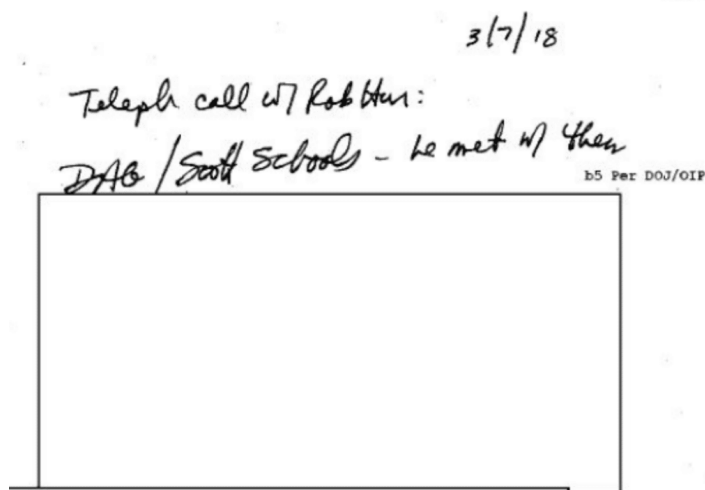 3/7/18
Teleph call w/ Rob Hur:
DAG / Scott Schools - he met w/ them
b5 Per DOJ/OIP